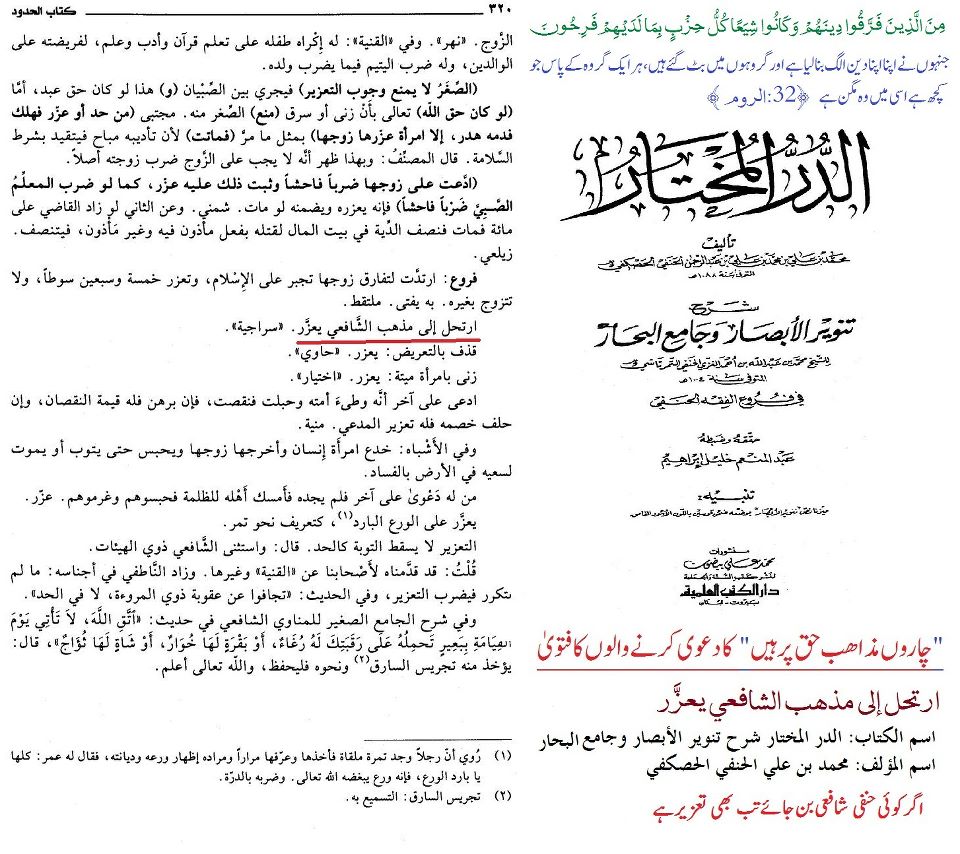 ٣٢٠
كتاب الحدود
الزّوج. «نهر». وفي «القنية»: له إكراه طفله على تعلم قرآن وأدب وعلم، لفريضته على
الوالدين، وله ضرب اليتيم فيما يضرب ولده.
(الصِّغَرُ لا يمنع وجوب التعزير) فيجري بين الصِّبْيان (و) هذا لو كان حق عبد، أمَّا
(لو كان حق اللَّه) تعالى بأَنْ زنى أو سرق (منع) الصِّغر منه. مجتبى (من حد أو عزّر فهلك
فدمه هدر، إلا امرأة عزّرها زوجها) بمثل ما مرَّ (فماتت) لأن تأديبه مباح فيتقيد بشرط
السَّلامة. قال المصنِّفُ: وبهذا ظهر أنَّه لا يجب على الزَّوج ضرب زوجته أصلاً.
(ادَّعت على زوجها ضرباً فاحشاً وثبت ذلك عليه عزّر، كما لو ضرب المعلِّمُ
الصَّبِيَّ ضَرْباً فاحشاً) فإنه يعزره ويضمنه لو مات. شمني. وعن الثاني لو زاد القاضي على
مائة فمات فنصف الدِّية في بيت المال لقتله بفعل مأذون فيه وغير مأذون، فيتنصف.
زيلعي.
فروع: ارتدَّت لتفارق زوجها تجبر على الإِسْلام، وتعزر خمسة وسبعين سوطاً، ولا
تتزوج بغيره. به يفتى. ملتقط.
ارتحل إلى مذهب الشَّافعي يعزَّر. «سراجية».
قذف بالتعريض: يعزر. «حاوي».
زنى بامرأة ميتة: يعزر. «اختيار».
ادعى على آخر أنَّه وطىء أمته وحبلت فنقصت، فإن برهن فله قيمة النقصان، وإن
حلف خصمه فله تعزير المدعي. منية.
وفي الأَشْباه: خدع امرأَة إِنسان وأخرجها زوجها ويحبس حتى يتوب أو يموت
لسعيه في الأرض بالفساد.
من له دَعْوىٰ على آخر فلم يجده فأَمسك أَهْله للظلمة فحبسوهم وغرموهم. عزّر.
يعزَّر على الورع البارد(١)، كتعريف نحو تمر.
التعزير لا يسقط التوبة كالحد. قال: واستثنى الشَّافعي ذوي الهيئات.
قُلْتُ: قد قدَّمناه لأَصْحابنا عن «القنية» وغيرها. وزاد النَّاطفي في أجناسه: ما لم
يتكرر فيضرب التعزير، وفي الحديث: «تجافوا عن عقوبة ذوي المروءة، لا في الحد».
وفي شرح الجامع الصغير للمناوي الشافعي في حديث: «اتَّقِ اللَّهَ، لاَ تَأْتِي يَوْمَ
القِيَامَةِ بِبَعِيرٍ تَحمِلُهُ عَلَى رَقَبَتِكَ لَهُ رُغَاءٌ، أَوْ بَقَرَةٍ لَها خُوَارٌ، أَوْ شَاةٍ لَها ثُؤَاجٌ»، قال:
يؤخذ منه تجريس السارق(٢) ونحوه فليحفظ، واللَّه تعالى أعلم.
(١) رُوي أنّ رجلاً وجد تمرة ملقاة فأخذها وعرّفها مراراً ومراده إظهار ورعه وديانته، فقال له عمر: كلها
يا بارد الورع، فإنه ورع يبغضه الله تعالى. وضربه بالدرّة.
(٢) تجريس السارق: التسميع به.
مِنَ الَّذِينَ فَرَّقُوا دِينَهُمْ وَكَانُوا شِيَعًا كُلُّ حِزْبٍ بِمَا لَدَيْهِمْ فَرِحُونَ
جنہوں نے اپنا اپنا دین الگ بنا لیا ہے اور گروہوں میں بٹ گئے ہیں، ہر ایک گروہ کے پاس جو
کچھ ہے اسی میں وہ مگن ہے ﴿32:الروم﴾
الدُّرُّ المُخْتَارُ
تأليف
محمد بن علي بن محمد بن علي بن عبد الرحمن الحنفي الحصكفي
المتوفى سنة ١٠٨٨هـ
شرح
تنوير الأبصار وجامع البحار
للشيخ محمد بن عبد الله بن أحمد الغزي الحنفي التمرتاشي
المتوفى سنة ١٠٠٤هـ
في فروع الفقه الحنفي
حققه وضبطه
عبد المنعم خليل إبراهيم
تنبيه:
منشورات
محمد علي بيضون
لنشر كتب السنة والجماعة
دار الكتب العلمية
بيروت - لبنان
"چاروں مذاہب حق پر ہیں" کا دعوی کرنے والوں کا فتویٰ
ارتحل إلى مذهب الشافعي يعزَّر
اسم الكتاب: الدر المختار شرح تنوير الأبصار وجامع البحار
اسم المؤلف: محمد بن علي الحنفي الحصكفي
اگر کوئی حنفی شافعی بن جائے تب بھی تعزیر ہے